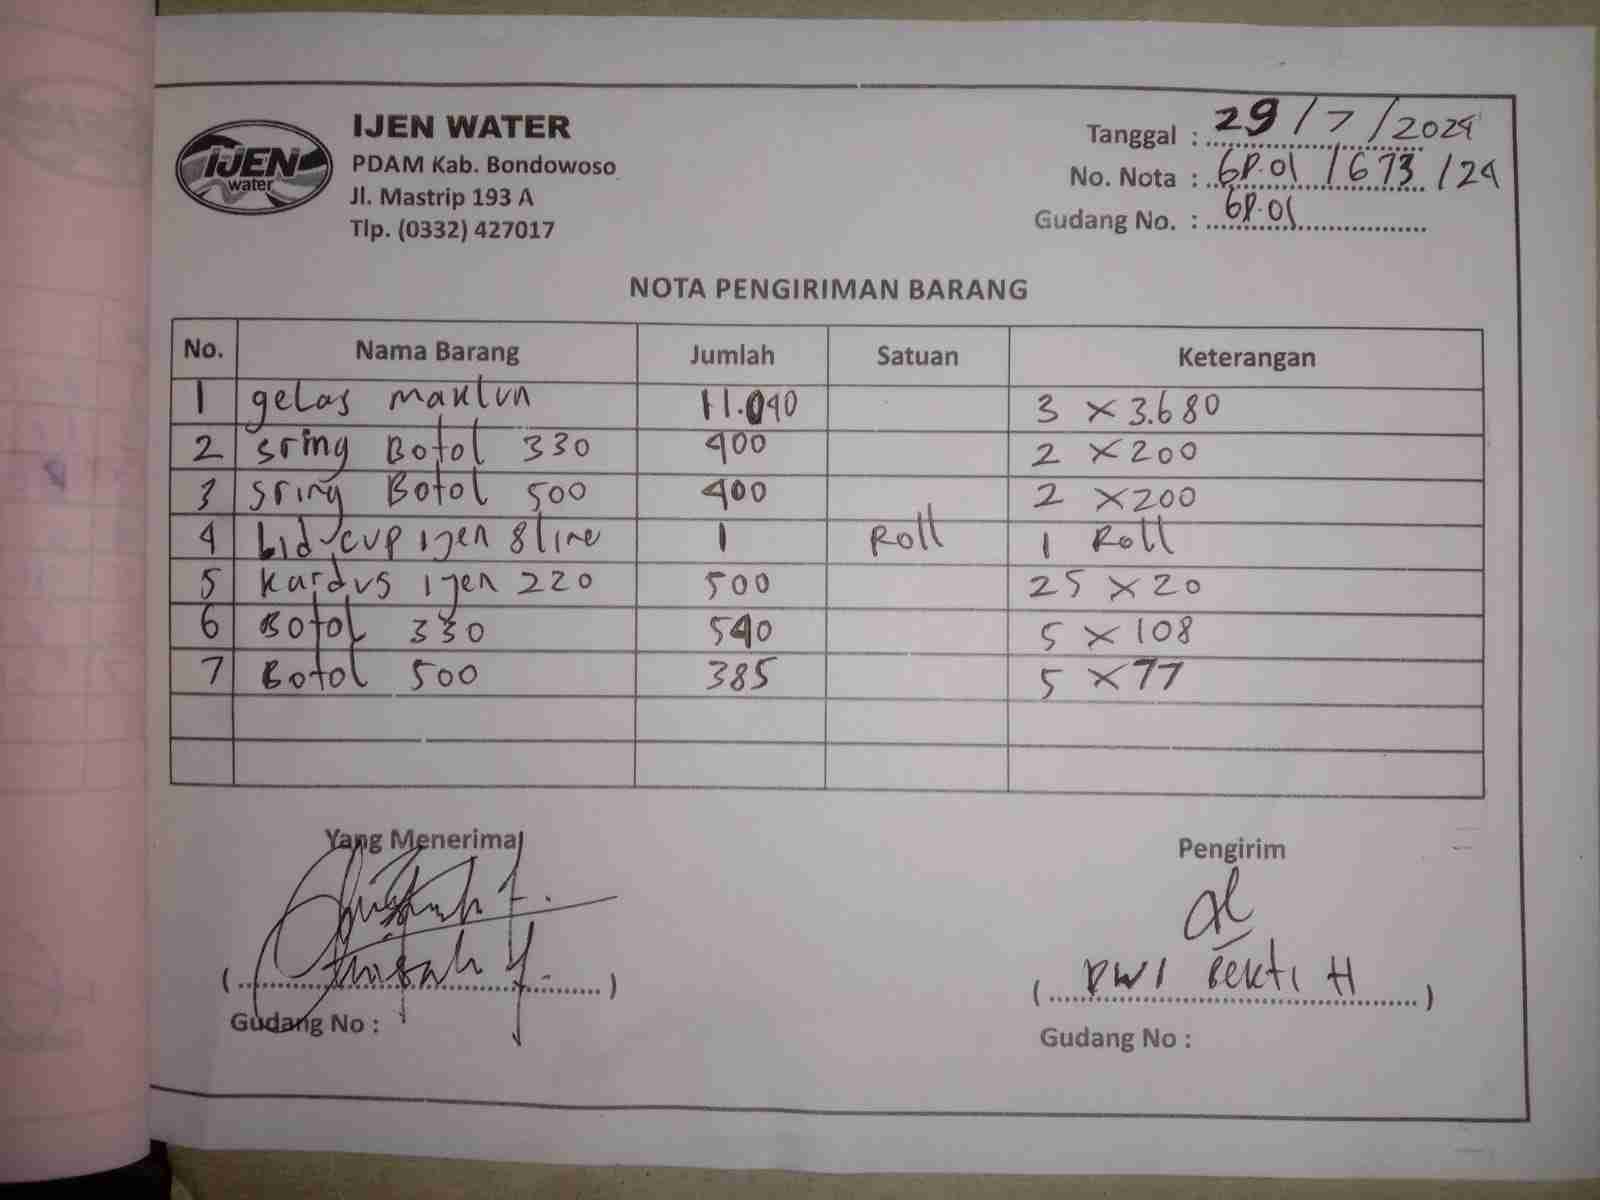 IJEN
water
IJEN WATER
PDAM Kab. Bondowoso
Jl. Mastrip 193 A
Tlp. (0332) 427017
Tanggal : 29/7/2024
No. Nota : GP.01 /673 /24
Gudang No. : GP.01
NOTA PENGIRIMAN BARANG
No. Nama Barang Jumlah Satuan Keterangan
1 gelas maklun 11.040 3 x 3.680
2 sring Botol 330 400 2 x 200
3 sring Botol 500 400 2 x 200
4 Lid cup ijen 8 line 1 Roll 1 Roll
5 kardus ijen 220 500 25 x 20
6 Botol 330 540 5 x 108
7 Botol 500 385 5 x 77
Yang Menerima Pengirim
( ) ( DWI Bekti H )
Gudang No : Gudang No :